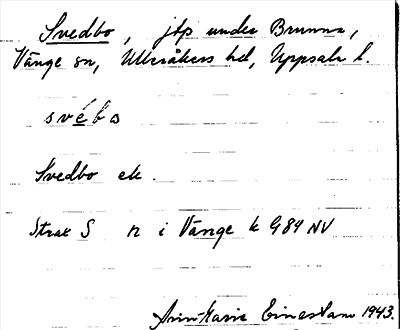 Svedbo, jtp under Brunna,
Vänge sn, Ulleråkers hd, Uppsala l.
svébo
Svedbo ek.
Strax S n i Vänge k G84 NV
Ann-Marie 1943.